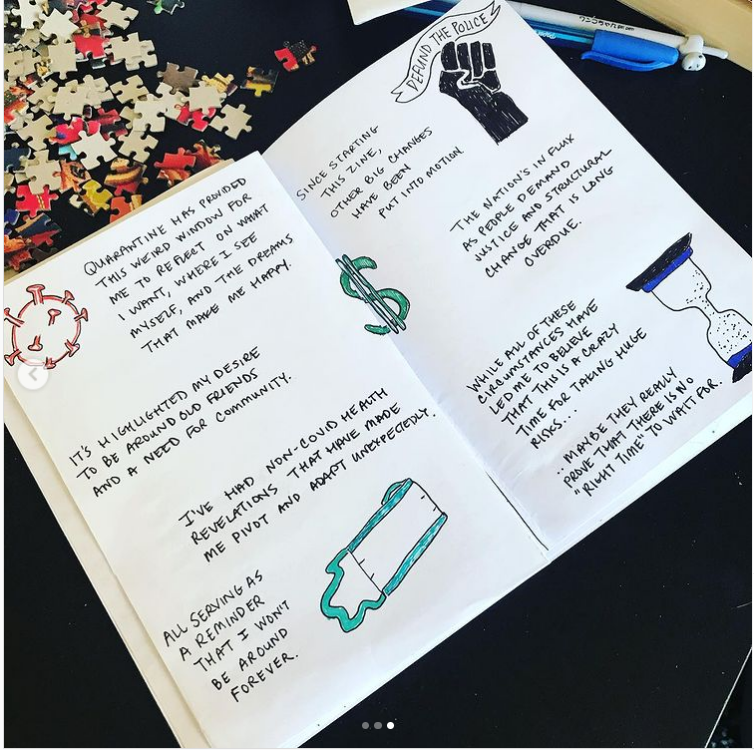 QUARANTINE HAS PROVIDED
THIS WEIRD WINDOW FOR
ME TO REFLECT ON WHAT
I WANT, WHERE I SEE
MYSELF, AND THE DREAMS
THAT MAKE ME HAPPY.
IT'S HIGHLIGHTED MY DESIRE
TO BE AROUND OLD FRIENDS
AND A NEED FOR COMMUNITY.
I'VE HAD NON-COVID HEALTH
REVELATIONS THAT HAVE MADE
ME PIVOT AND ADAPT UNEXPECTEDLY.
ALL SERVING AS
A REMINDER
THAT I WON'T
BE AROUND
FOREVER.
DEFUND THE POLICE
SINCE STARTING
THIS ZINE,
OTHER BIG CHANGES
HAVE BEEN
PUT INTO MOTION
THE NATION'S IN FLUX
AS PEOPLE DEMAND
JUSTICE AND STRUCTURAL
CHANGE THAT IS LONG
OVERDUE.
$
WHILE ALL OF THESE
CIRCUMSTANCES HAVE
LED ME TO BELIEVE
THAT THIS IS A CRAZY
TIME FOR TAKING HUGE
RISKS...
..MAYBE THEY REALLY
PROVE THAT THERE IS NO
"RIGHT TIME" TO WAIT FOR.